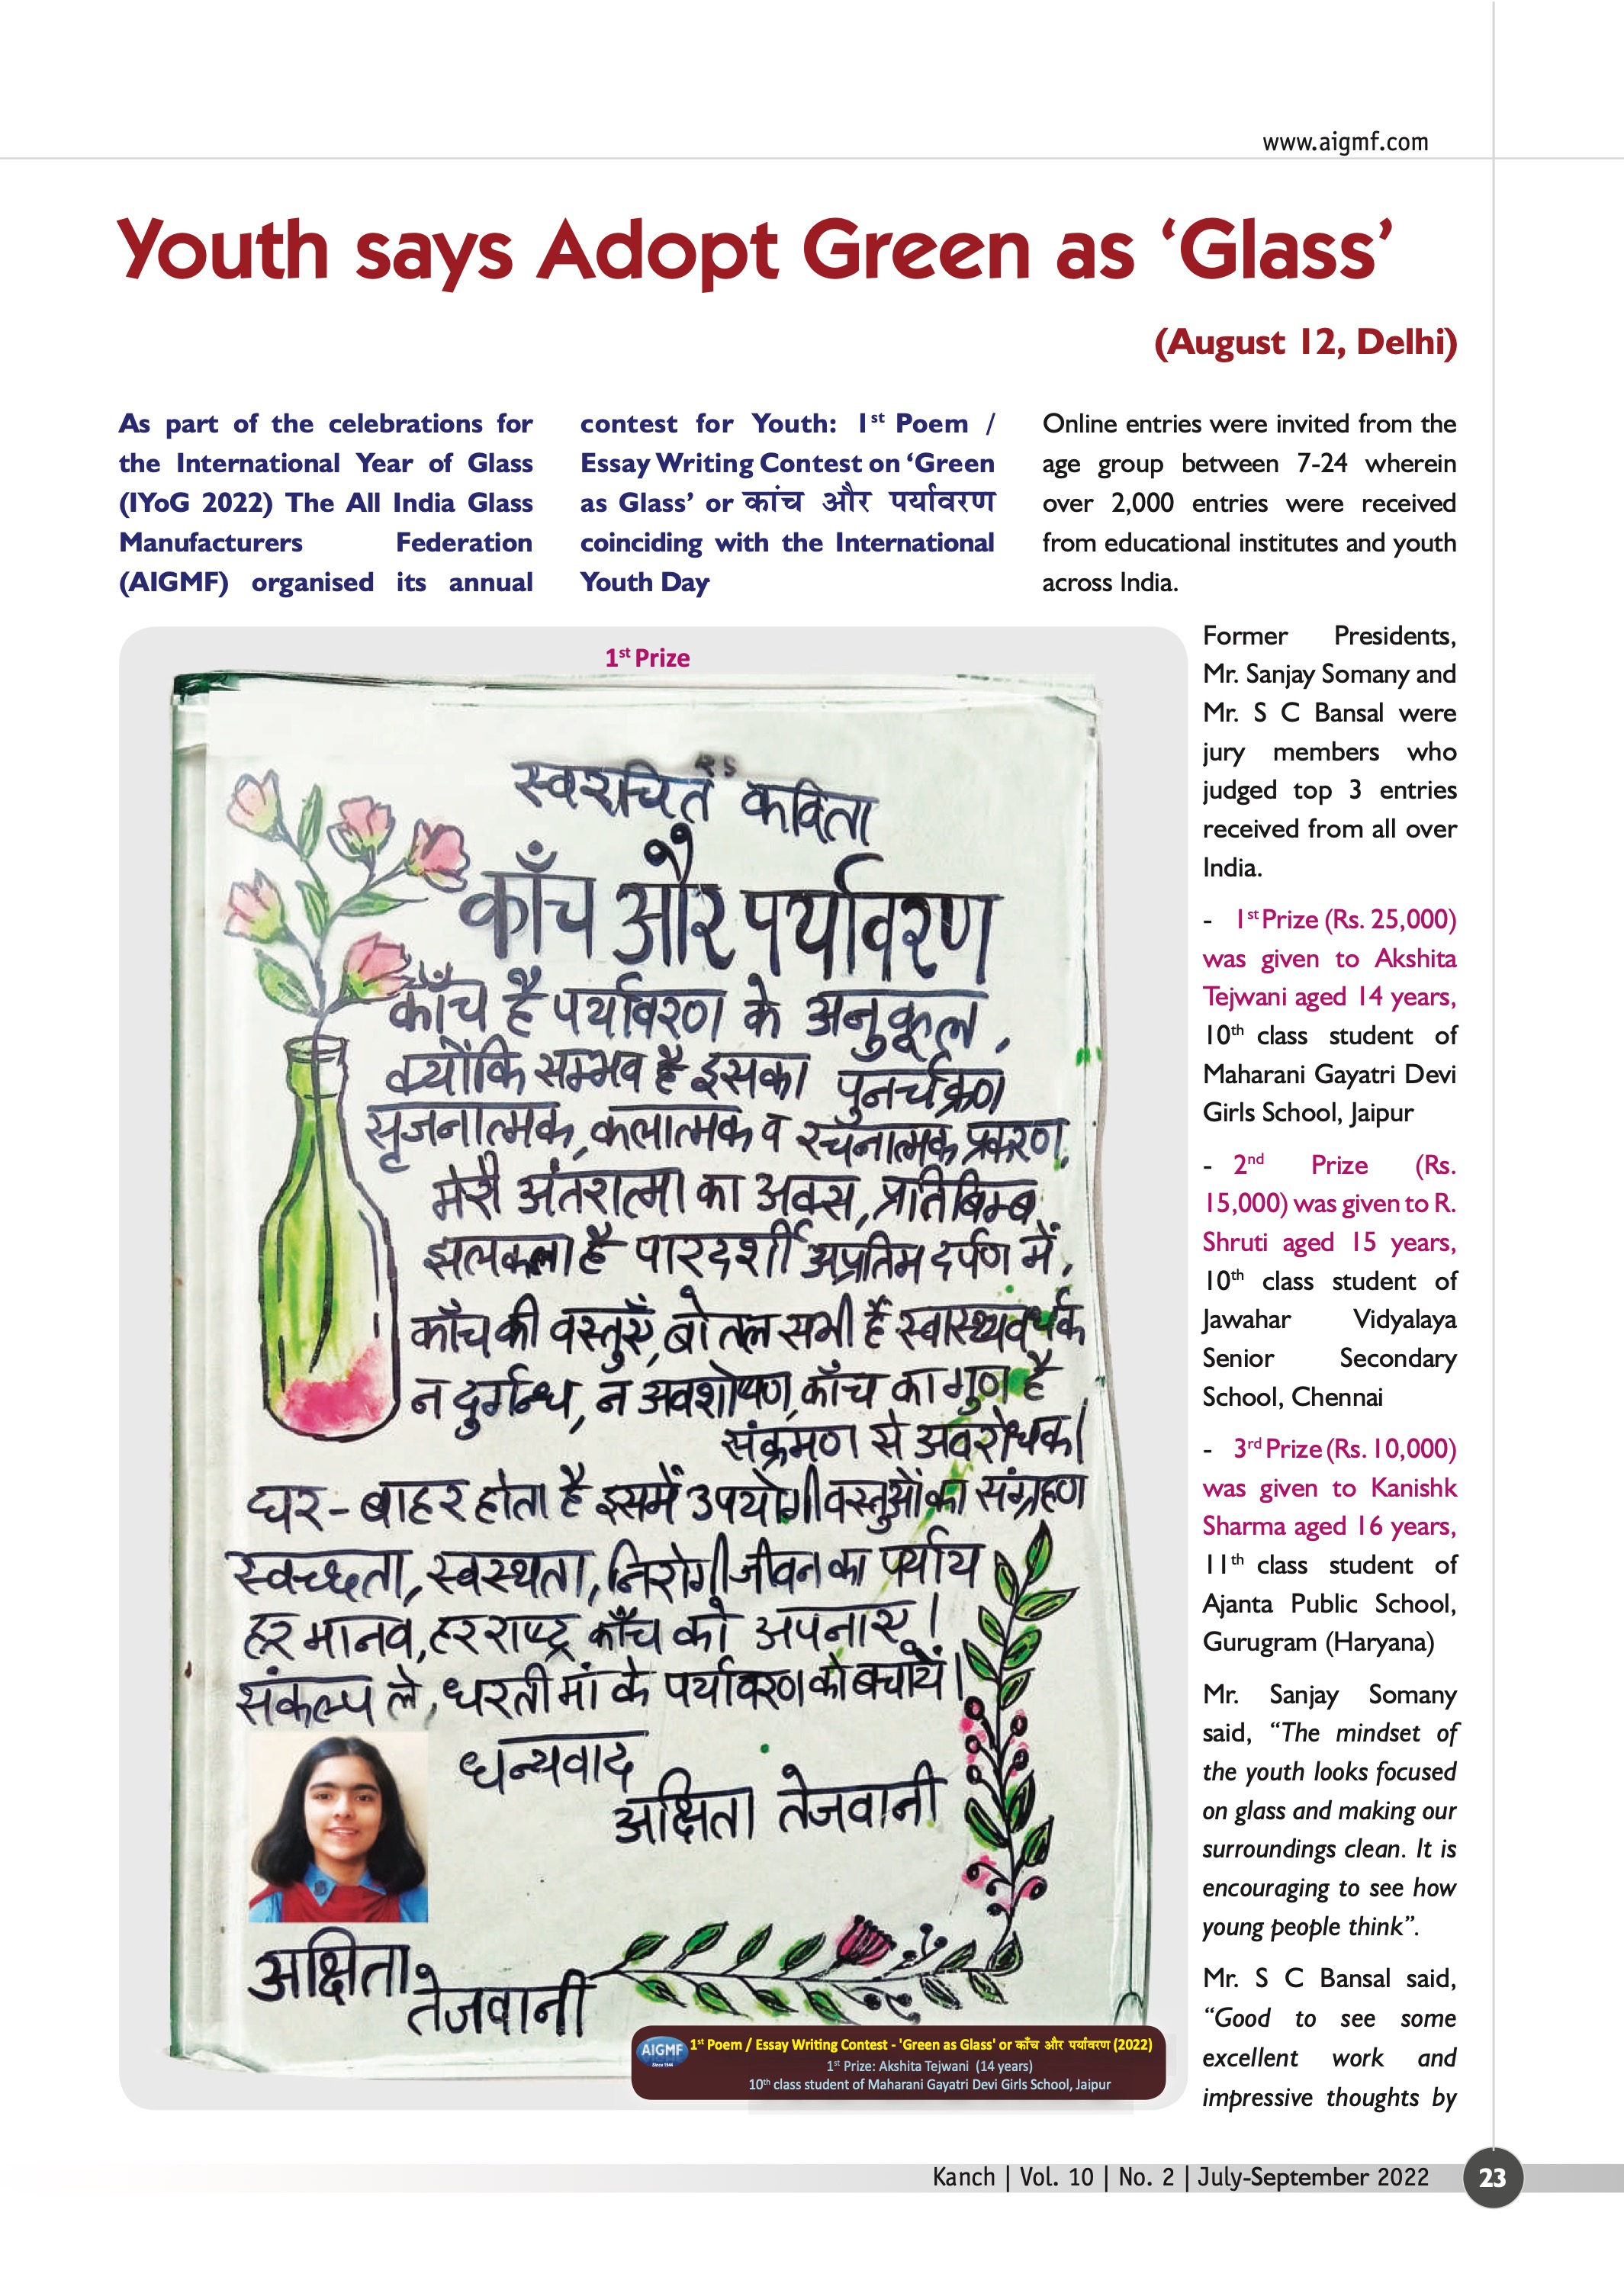 www.aigmf.com
Youth says Adopt Green as ‘Glass’
(August 12, Delhi)
As part of the celebrations for
the International Year of Glass
(IYoG 2022) The All India Glass
Manufacturers Federation
(AIGMF) organised its annual
contest for Youth: 1st Poem /
Essay Writing Contest on ‘Green
as Glass’ or कांच और पर्यावरण
coinciding with the International
Youth Day
Online entries were invited from the
age group between 7-24 wherein
over 2,000 entries were received
from educational institutes and youth
across India.
1st Prize
स्वरचित कविता
काँच और पर्यावरण
काँच है पर्यावरण के अनुकूल,
क्योंकि सम्भव है इसका पुनर्चक्रण
सृजनात्मक, कलात्मक व रचनात्मक प्रकरण,
मेरी अंतरात्मा का अक्स, प्रतिबिम्ब
झलकता है पारदर्शी अप्रतिम दर्पण में,
काँच की वस्तुएँ, बोतल सभी हैं स्वास्थ्यवर्धक
न दुर्गन्ध, न अवशोषण, काँच का गुण है
संक्रमण से अवरोधक।
घर - बाहर होता है इसमें उपयोगी वस्तुओं का संग्रहण
स्वच्छता, स्वस्थता, निरोगी जीवन का पर्याय
हर मानव, हर राष्ट्र काँच को अपनाए।
संकल्प ले, धरती मां के पर्यावरण को बचायें।
धन्यवाद
अक्षिता तेजवानी
अक्षिता
तेजवानी
AIGMF
Since 1944
1st Poem / Essay Writing Contest - 'Green as Glass' or काँच और पर्यावरण (2022)
1st Prize: Akshita Tejwani (14 years)
10th class student of Maharani Gayatri Devi Girls School, Jaipur
Former Presidents,
Mr. Sanjay Somany and
Mr. S C Bansal were
jury members who
judged top 3 entries
received from all over
India.
- 1st Prize (Rs. 25,000)
was given to Akshita
Tejwani aged 14 years,
10th class student of
Maharani Gayatri Devi
Girls School, Jaipur
- 2nd Prize (Rs.
15,000) was given to R.
Shruti aged 15 years,
10th class student of
Jawahar Vidyalaya
Senior Secondary
School, Chennai
- 3rd Prize (Rs. 10,000)
was given to Kanishk
Sharma aged 16 years,
11th class student of
Ajanta Public School,
Gurugram (Haryana)
Mr. Sanjay Somany
said, “The mindset of
the youth looks focused
on glass and making our
surroundings clean. It is
encouraging to see how
young people think”.
Mr. S C Bansal said,
“Good to see some
excellent work and
impressive thoughts by
Kanch | Vol. 10 | No. 2 | July-September 2022
23